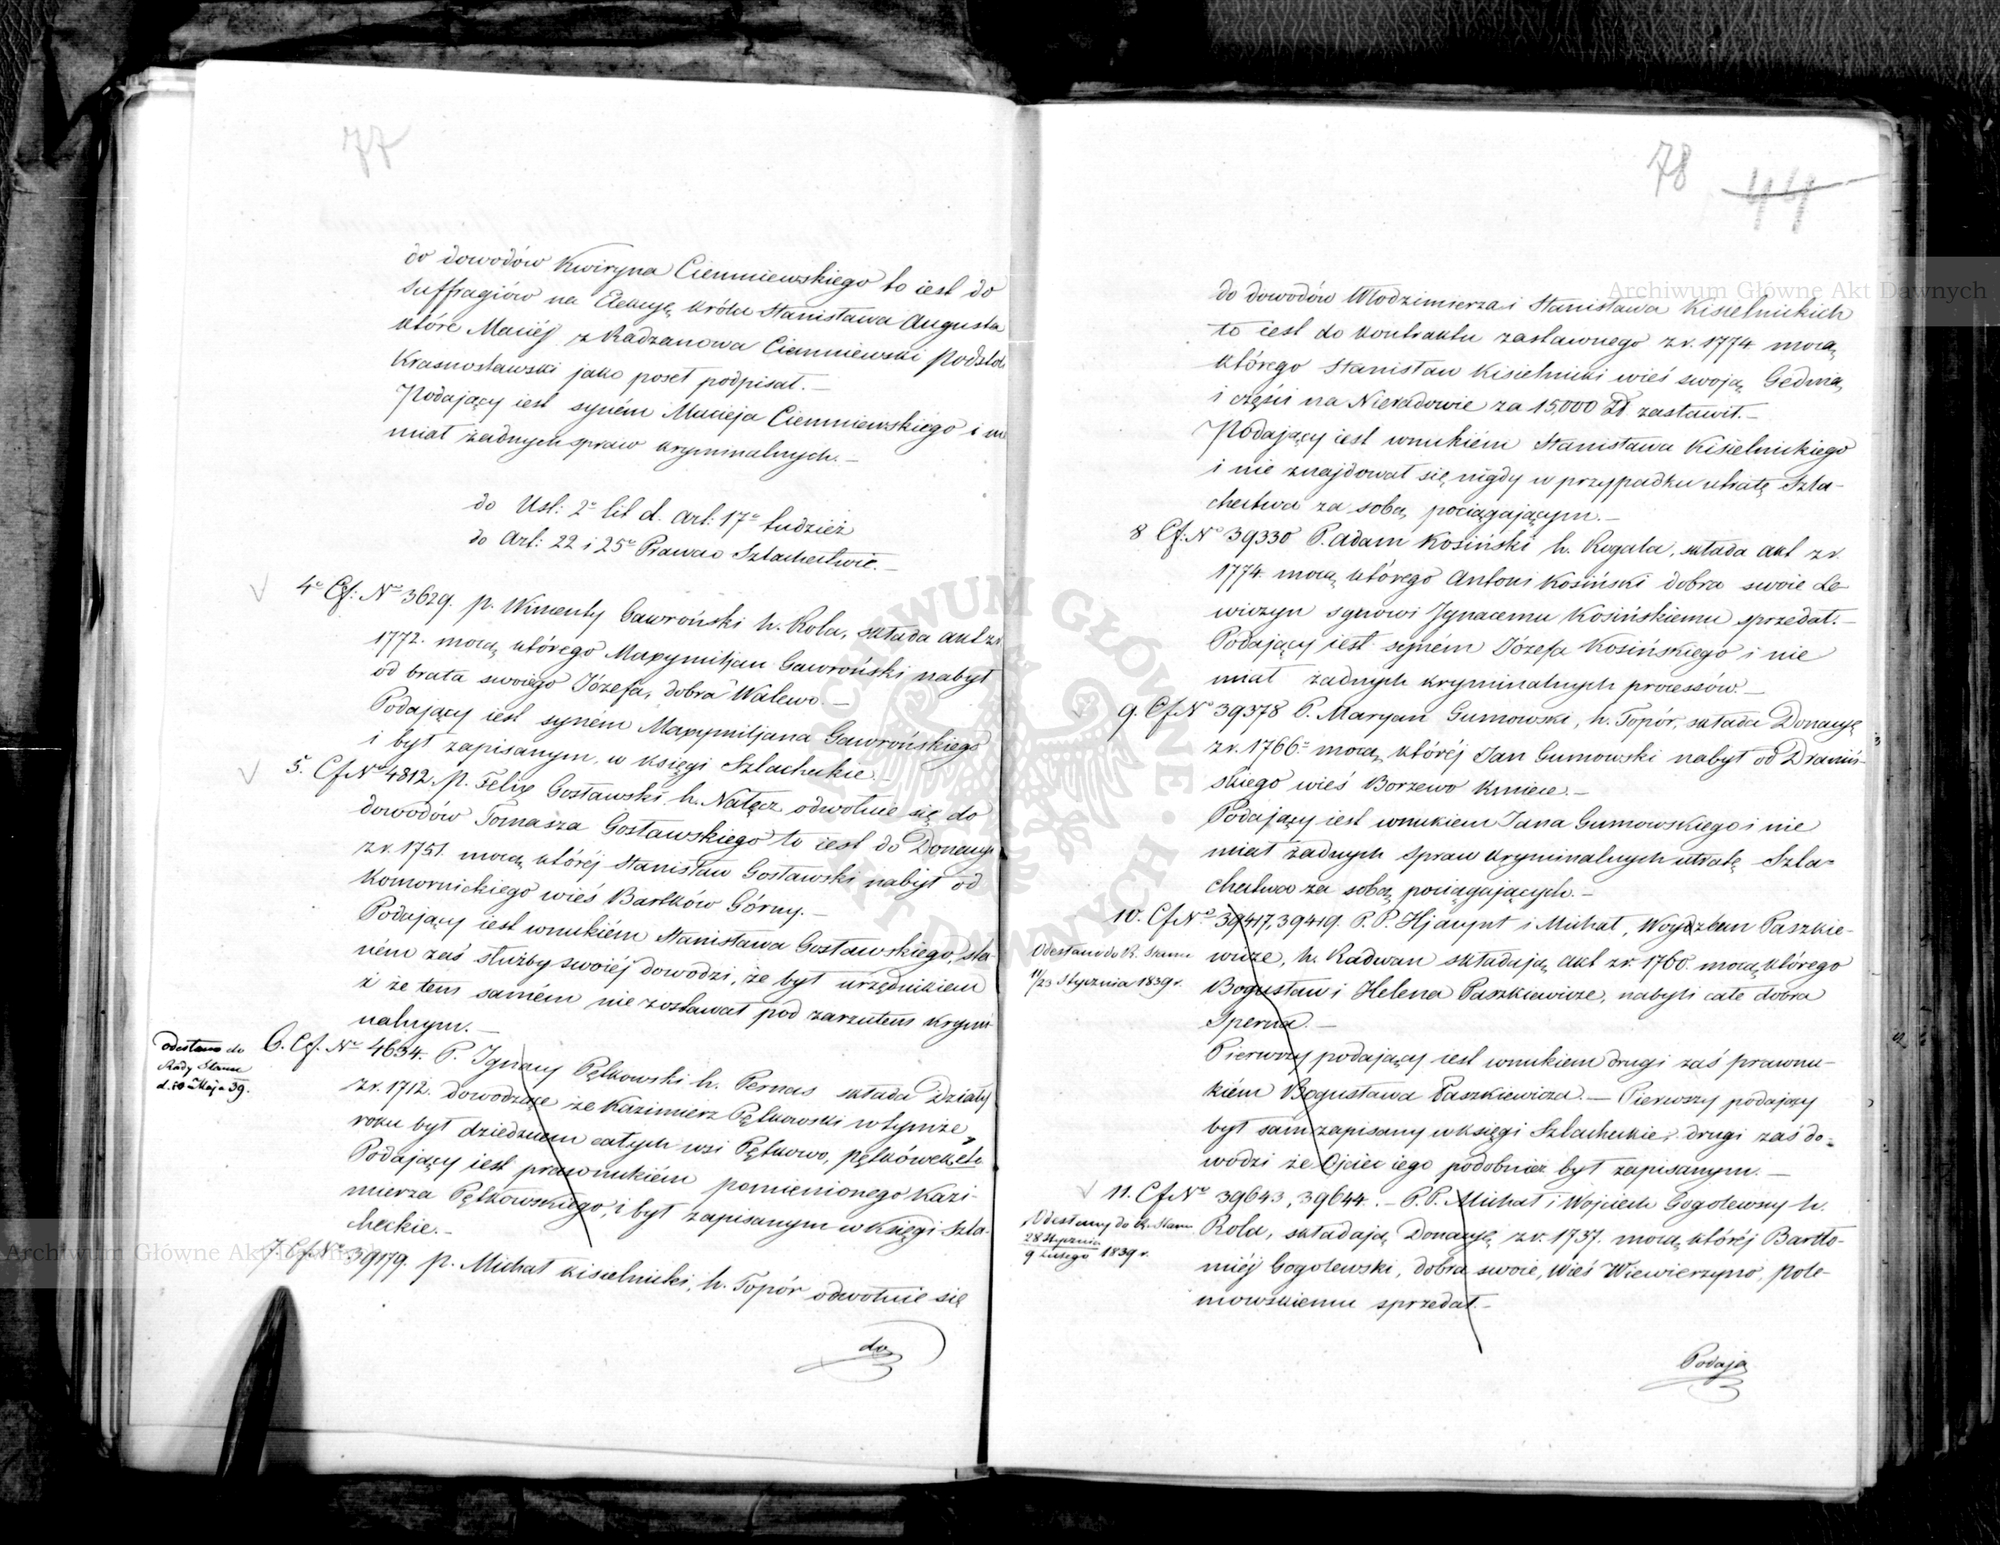 77
do dowodów Kwiryna Ciemniewskiego to iest do
suffragiów na Elekcyę Króla Stanisława Augusta
które Maciéj z Radzanowa Ciemniewski Podstoli
Krasnostawski jako poseł podpisał. —
Podający iest syném Macieja Ciemniewskiégo i nie
miał żadnych spraw kryminalnych. —
do Ust: 2º lit d. Art: 17º tudzież
do Art: 22 i 25º Prawa o Szlachectwie. —
4º Cf: Nº 3629. p. Wincenty Gawroński h. Rola, składa akt z r.
1772. mocą którego Maxymiljan Gawroński nabył
od brata swoiego Józefa, dobra Walewo. —
Podający iest synem Maxymiljana Gawrońskiego
i był zapisanym w księgi Szlacheckie. —
5. Cf Nº 4812. p. Felix Gosławski, h. Nałęcz odwołuie się do
dowodów Tomasza Gosławskiego to iest do Donacyi
z r. 1751. mocą któréj Stanisław Gosławski nabył od
Komornickiego wieś Bartków Górny. —
Podający iest wnukiém Stanisława Gosławskiego, sta-
ném zaś służby swoiéj dowodzi, że był urzędnikiem
i że tem samém nie zostawał pod zarzutem krymi-
nalnym. —
odesłano do
Rady Stanu
d. Maja 39.
6. Cf. Nº 4634. P. Ignacy Pętkowski h. Pernas składa Działy
z r. 1712. dowodzące że Kazimierz Pętkowski w tymże
roku był dziedzicem całych wsi Pętkowo, pętkówek etc
Podający iest prawnukiém pomienionego Kazi-
mierza Pętkowskiégo, i był zapisanym w Księgi Szla-
checkie. —
7. Cf Nº 39179. p. Michał Kisielnicki, h. Topór odwołuie się
do
78 44
do dowodów Włodzimierza i Stanisława Kisielnickich
to iest do kontraktu zastawnego z r. 1774 mocą
którego Stanisław Kisielnicki wieś swoją Gednią
i części na Nieradowie za 15,000 Zł zastawił. —
Podający iest wnukiém Stanisława Kisielnickiego
i nie znajdował się nigdy w przypadku utratę Szla-
chectwa za sobą pociągającym. —
8 Cf: Nº 39330 P. Adam Kosiński h. Rogala, składa akt z r.
1774. mocą którego Antoni Kosiński dobra swoie Le-
wiczyn synowi Ignacemu Kosińskiemu sprzedał. —
Podający iest syném Józefa Kosińskiego i nie
miał żadnych kryminalnych processów. —
9. Cf Nº 39378 P. Maryan Gumowski, h. Topór, składa Donacyę
z r. 1766. mocą któréj Jan Gumowski nabył od Dramiń-
skiego wieś Borzewo Kmiece. —
Podający iest wnukiem Jana Gumowskiego i nie
miał żadnych spraw kryminalnych utratę Szla-
chectwa za sobą pociągających. —
10. Cf Nº 39417, 39419. P. P. Hjacynt i Michał, Woyszbun Paszkie-
Odesłano do R. Stanu
11/23 Stycznia 1839 r.
wicze, h. Radwan składają akt z r. 1760. mocą którego
Bogusław i Helena Paszkiewicze, nabyli całe dobra
Iperna. —
Pierwszy podający iest wnukiem drugi zaś prawnu-
kiém Bogusława Paszkiewicza. — Pierwszy podający
był sam zapisany w księgi Szlacheckie, drugi zaś do-
wodzi że Ojciec iego podobnież był zapisanym. —
11. Cf Nº 39643, 39644. — P. P. Michał i Wojciech Gogolewscy h.
Odesłany do R. Stanu
28 Stycznia
9 Lutego 1839 r.
Rola, składają Donacyę z r. 1737. mocą któréj Bartło-
miéj Gogolewski, dobra swoie, Wieś Wiewierzyno, Pole-
mowskiemu sprzedał. —
Podają
Archiwum Główne Akt Dawnych
Archiwum Główne Akt Dawnych
ARCHIWUM GŁÓWNE AKT DAWNYCH